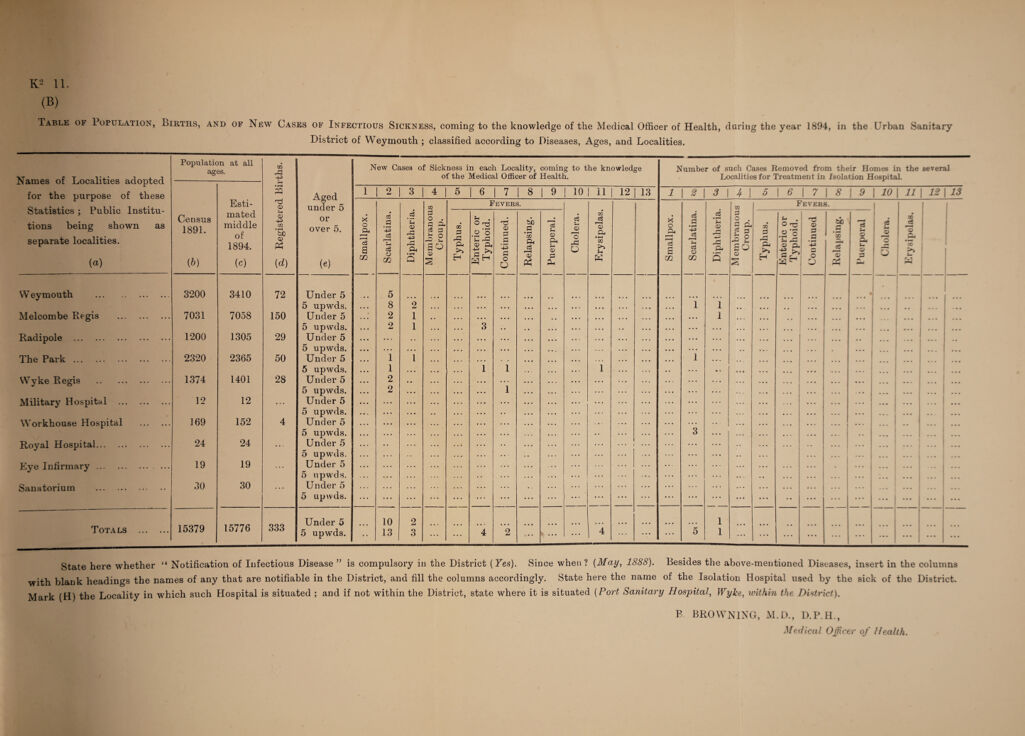 K² 11.
(B)
TABLE OF POPULATION, BIRTHS, AND OF NEW CASES OF INFECTIOUS SICKNESS, coming to the knowledge of the Medical Officer of Health, during the year 1894, in the Urban Sanitary
District of Weymouth ; classified according to Diseases, Ages, and Localities.
Names of Localities adopted for the purpose of these Statistics ; Public Institutions being shown as separate localities.
(a)
Population at all ages.
Census 1891.
(b)
Estimated middle of 1894.
(c)
Registered Births.
(d)
Aged under 5 or over 5.
(e)
New Cases of Sickness in each Locality, coming to the knowledge
of the Medical Officer of Health.
1 2 3 4 5 6 7 8 9 10 11 12 13
FEVERS.
Smallpox. Scarlatina. Diphtheria. Membranous Croup. Typhus. Enteric or Typhoid. Continued. Relapsing. Puerperal. Cholera. Erysipelas.
Number of such Cases Removed from their Homes in the several
Localities for Treatment in Isolation Hospital.
1 2 3 4 5 6 7 8 9 10 11 12 13
FEVERS.
Smallpox. Scarlatina. Diphtheria. Membranous Croup. Typhus. Enteric or Typhoid. Continued Relapsing. Puerperal Cholera. Erysipelas.
Weymouth ... 3200 3410 72 Under 5 ... 5
5 upwds. ... 8 2 ... 1 1
Melcombe Regis ... 7031 7058 150 Under 5 ... 2 1 ... 1
5 upwds. ... 2 1 ... 3
Radipole ... 1200 1305 29 Under 5
5 upwds.
The Park ... 2320 2365 50 Under 5 ... 1 1 ... 1
5 upwds. ... 1 ... 1 1 ... 1
Wyke Regis ... 1374 1401 28 Under 5 ... 2
5 upwds. ... 2 ... 1
Military Hospital ... 12 12 ... Under 5
5 upwds.
Workhouse Hospital ... 169 152 4 Under 5
5 upwds. ... 3
Royal Hospital... 24 24 ... Under 5
5 upwds.
Eye Infirmary ... 19 19 ... Under 5
5 upwds.
Sanatorium ... 30 30 ... Under 5
5 upwds.
TOTALS ... 15379 15776 333 Under 5 ... 10 2 ... 1
5 upwds. ... 13 3 ... 4 2 ... 4 ... 5 1
State here whether “ Notification of Infectious Disease ” is compulsory in the District (Yes). Since when? (May, 1888). Besides the above-mentioned Diseases, insert in the columns
with blank headings the names of any that are notifiable in the District, and fill the columns accordingly. State here the name of the Isolation Hospital used by the sick of the District.
Mark (H) the Locality in which such Hospital is situated ; and if not within the District, state where it is situated (Port Sanitary Hospital, Wyke, within the District).
B. BROWNING, M.D., D.P.H.,
Medical Officer of Health.